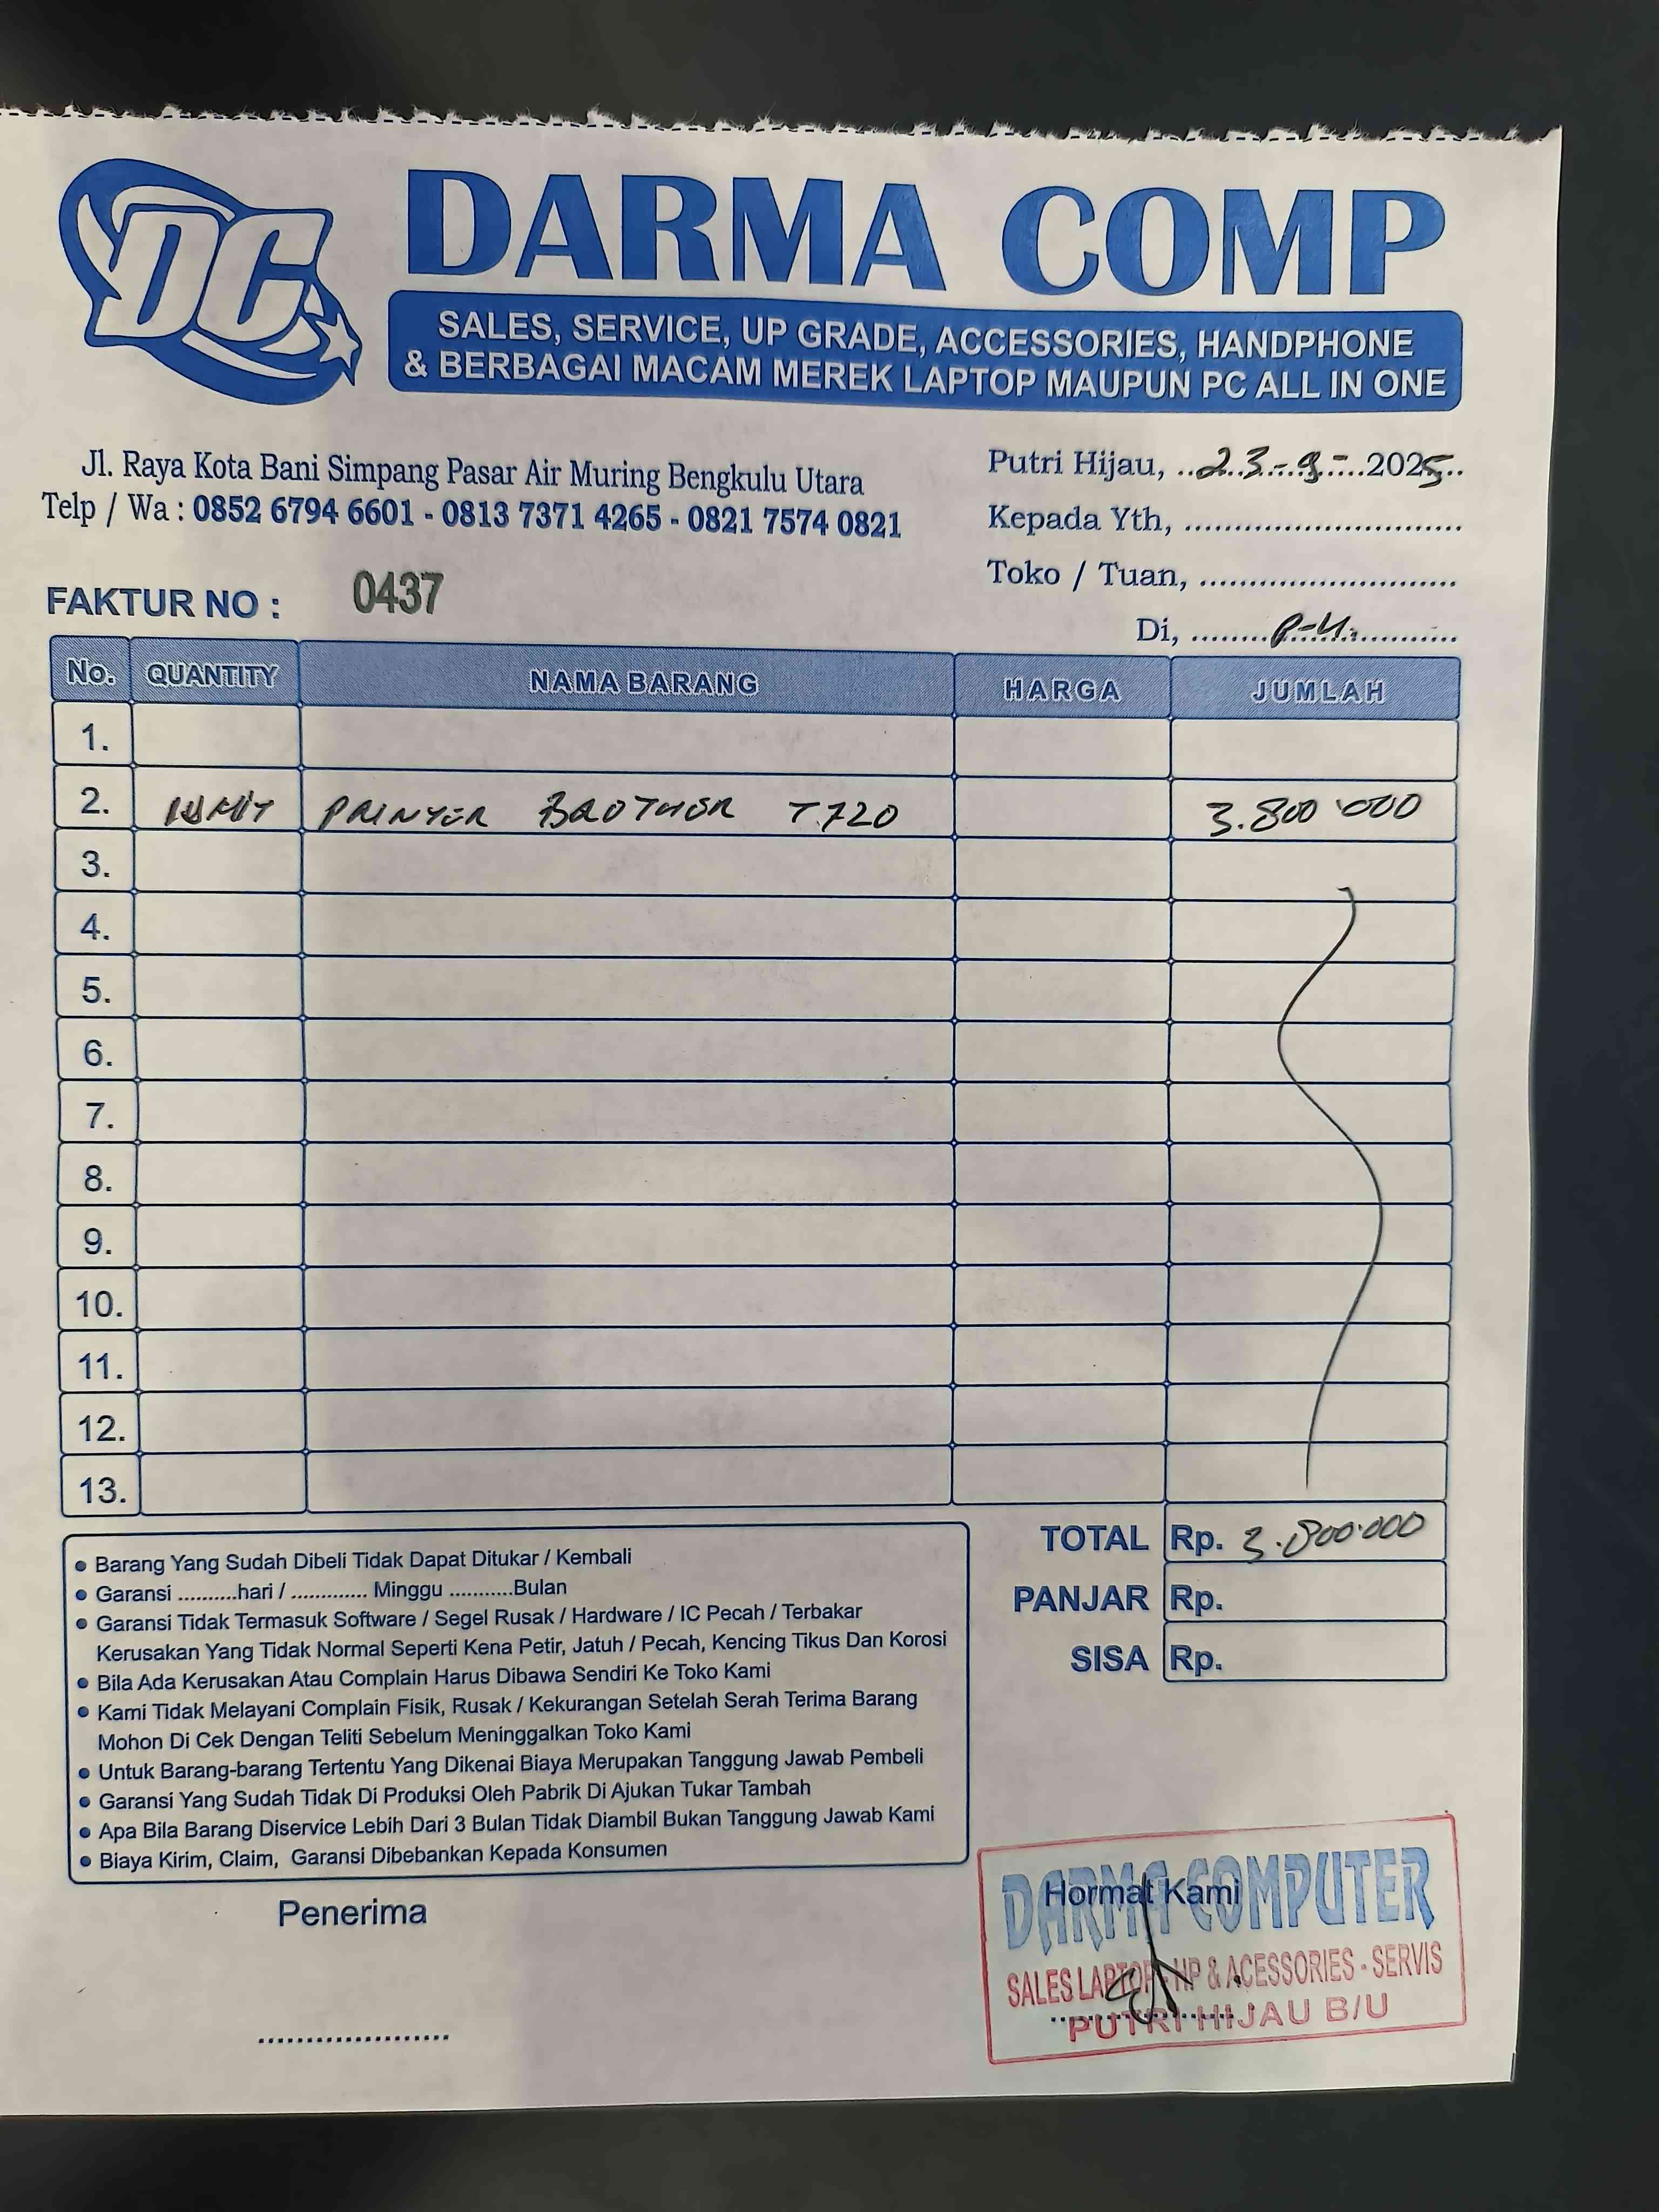 DC
DARMA COMP
SALES, SERVICE, UP GRADE, ACCESSORIES, HANDPHONE
& BERBAGAI MACAM MEREK LAPTOP MAUPUN PC ALL IN ONE
Jl. Raya Kota Bani Simpang Pasar Air Muring Bengkulu Utara
Telp / Wa : 0852 6794 6601 - 0813 7371 4265 - 0821 7574 0821
Putri Hijau, ..23.-.9.-....2025..
Kepada Yth, ............................
Toko / Tuan, ..........................
Di, ........P-H...............
FAKTUR NO : 0437
No. QUANTITY NAMA BARANG HARGA JUMLAH
1.
2. 1 UNIT PRINTER BROTHER T.720 3.800.000
3.
4.
5.
6.
7.
8.
9.
10.
11.
12.
13.
TOTAL Rp. 3.800.000
PANJAR Rp.
SISA Rp.
• Barang Yang Sudah Dibeli Tidak Dapat Ditukar / Kembali
• Garansi ..........hari / ............. Minggu ...........Bulan
• Garansi Tidak Termasuk Software / Segel Rusak / Hardware / IC Pecah / Terbakar
Kerusakan Yang Tidak Normal Seperti Kena Petir, Jatuh / Pecah, Kencing Tikus Dan Korosi
• Bila Ada Kerusakan Atau Complain Harus Dibawa Sendiri Ke Toko Kami
• Kami Tidak Melayani Complain Fisik, Rusak / Kekurangan Setelah Serah Terima Barang
Mohon Di Cek Dengan Teliti Sebelum Meninggalkan Toko Kami
• Untuk Barang-barang Tertentu Yang Dikenai Biaya Merupakan Tanggung Jawab Pembeli
• Garansi Yang Sudah Tidak Di Produksi Oleh Pabrik Di Ajukan Tukar Tambah
• Apa Bila Barang Diservice Lebih Dari 3 Bulan Tidak Diambil Bukan Tanggung Jawab Kami
• Biaya Kirim, Claim, Garansi Dibebankan Kepada Konsumen
Penerima
....................
Hormat Kami
DARMA COMPUTER
SALES LAPTOP - HP & ACESSORIES - SERVIS
PUTRI HIJAU B/U